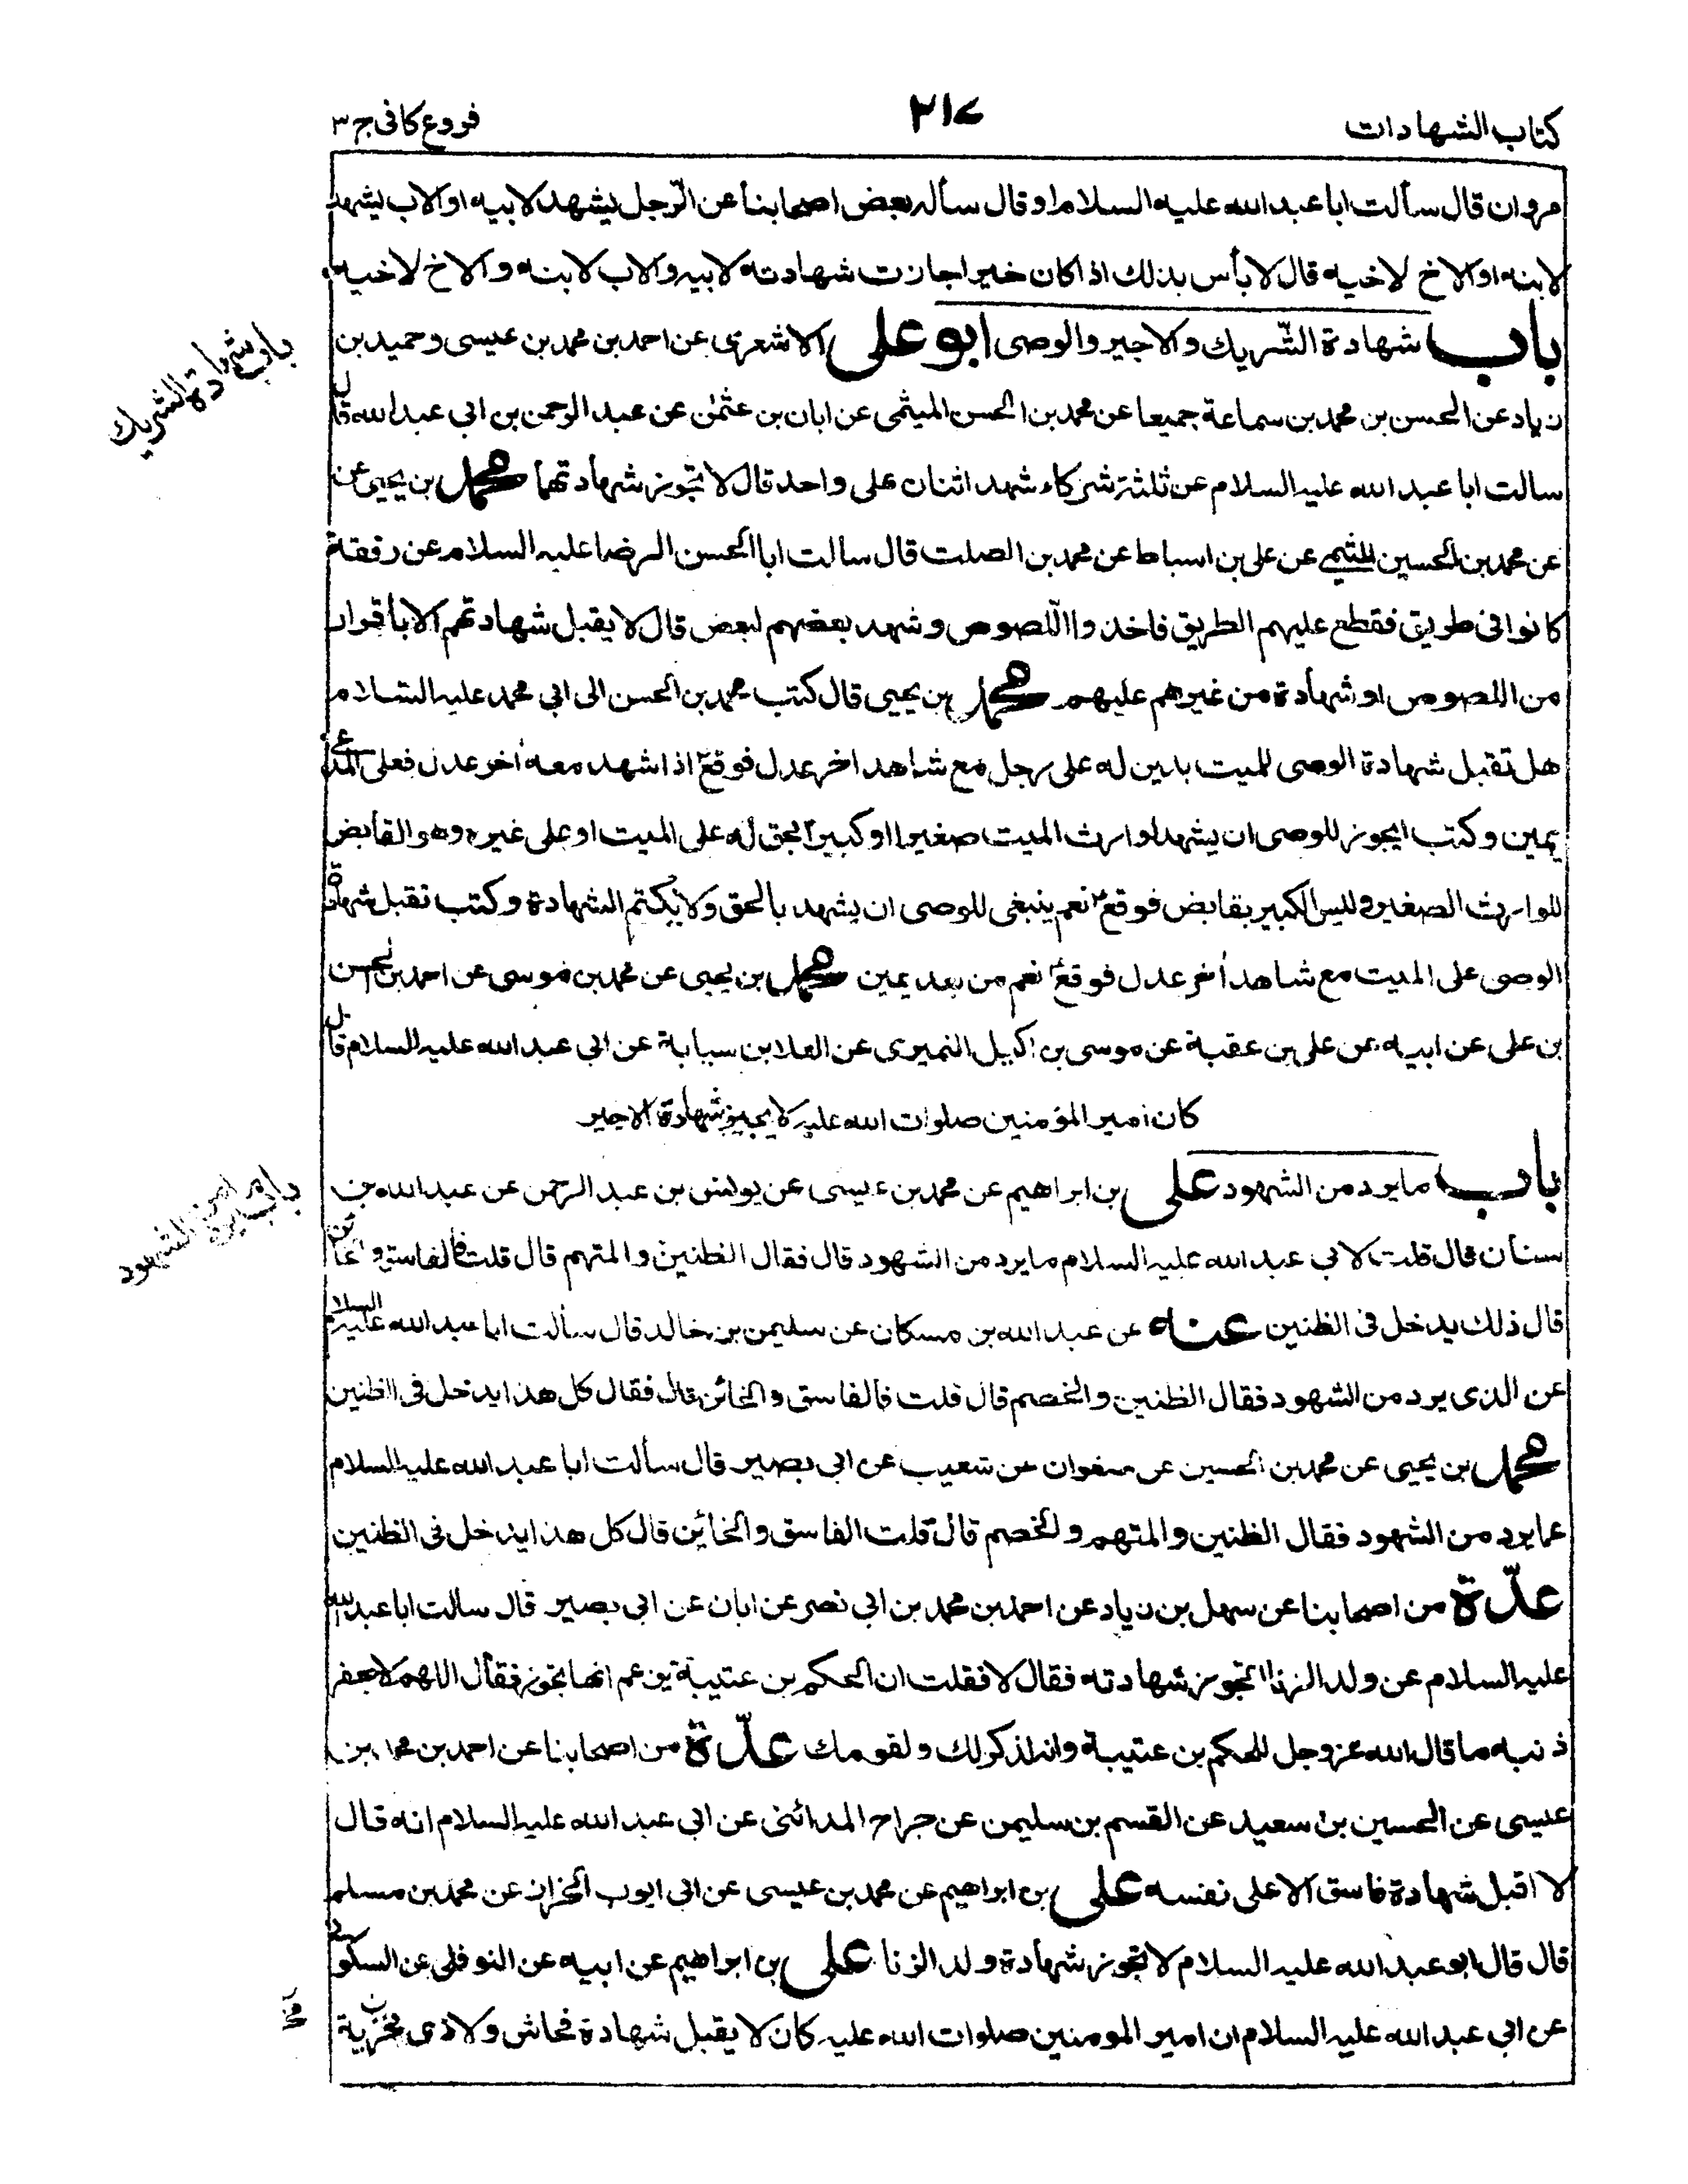 كتاب الشهادات
٢١٧
فروع كافى ج ٣
مروان قال سألت ابا عبد الله عليه السلام او قال سأله بعض اصحابنا عن الرّجل يشهد لابيه او الاب يشهد
لابنه او الاخ لاخيه قال لا بأس بذلك اذا كان خيرا جازت شهادته لابيه والاب لابنه والاخ لاخيه
باب شهادة الشّريك والاجير والوصى ابو على الاشعرى عن احمد بن محمد بن عيسى وحميد بن
باب شهادة الشريك
زياد عن الحسن بن محمد بن سماعة جميعا عن محمد بن الحسن الميثمى عن ابان بن عثمٰن عن عبد الرحمن بن ابى عبد الله قال
سالت ابا عبد الله عليه السلام عن ثلثة شركاء شهد اثنان على واحد قال لا تجوز شهادتهما محمد بن يحيى عن
عن محمد بن الحسين الميثمى عن على بن اسباط عن محمد بن الصلت قال سالت ابا الحسن الرضا عليه السلام عن رفقة
كانوا فى طريق فقطع عليهم الطريق فاخذوا اللّصوص وشهد بعضهم لبعض قال لا يقبل شهادتهم الا بأقرار
من اللصوص او شهادة من غيرهم عليهم محمد بن يحيى قال كتب محمد بن الحسن الى ابى محمد عليه السّلام
هل تقبل شهادة الوصى للميت بدين له على رجل مع شاهد اخر عدل فوقع ع اذا شهد معه اخر عدل فعلى المدعى
يمين وكتب ايجوز للوصى ان يشهد لوارث الميت صغيرا او كبيرا بحق له على الميت او على غيره وهو القابض
للوارث الصغير وليس الكبير بقابض فوقع ع نعم ينبغى للوصى ان يشهد بالحق ولا يكتم الشهادة وكتب تقبل شهادة
الوصى على الميت مع شاهد اخر عدل فوقع ع نعم من بعد يمين محمد بن يحيى عن محمد بن موسى عن احمد بن الحسن
بن على عن ابيه عن على بن عقبة عن موسى بن اكيل النميرى عن العلا بن سيابة عن ابى عبد الله عليه السلام قال
كان امير المؤمنين صلوات الله عليه لا يجيز شهادة الاجير
باب ما يرد من الشهود على بن ابراهيم عن محمد بن عيسى عن يونس بن عبد الرحمن عن عبد الله بن
باب ما يرد من الشهود
سنان قال قلت لابى عبد الله عليه السلام ما يرد من الشهود قال فقال الظنين والمتهم قال قلت فالفاسق والخائن
قال ذلك يدخل فى الظنين عنه عن عبد الله بن مسكان عن سليمن بن خالد قال سألت ابا عبد الله عليه السلام
عن الذى يرد من الشهود فقال الظنين والخصم قال قلت فالفاسق والخائن قال فقال كل هذا يدخل فى الظنين
محمد بن يحيى عن محمد بن الحسين عن صفوان عن شعيب عن ابى بصير قال سألت ابا عبد الله عليه السلام
عما يرد من الشهود فقال الظنين والمتهم والخصم قال قلت الفاسق والخائن قال كل هذا يدخل فى الظنين
عدّة من اصحابنا عن سهل بن زياد عن احمد بن محمد بن ابى نصر عن ابان عن ابى بصير قال سالت ابا عبد الله
عليه السلام عن ولد الزنا اتجوز شهادته فقال لا فقلت ان الحكم بن عتيبة يزعم انها تجوز فقال اللهم لا تغفر
ذنبه ما قال الله عز وجل للحكم بن عتيبة وانه لذكر لك ولقومك عدّة من اصحابنا عن احمد بن محمد بن
عيسى عن الحسين بن سعيد عن القسم بن سليمن عن جراح المدائنى عن ابى عبد الله عليه السلام انه قال
لا اقبل شهادة فاسق الا على نفسه على بن ابراهيم عن محمد بن عيسى عن ابى ايوب الخزاز عن محمد بن مسلم
قال قال ابو عبد الله عليه السلام لا تجوز شهادة ولد الزنا على بن ابراهيم عن ابيه عن النوفلى عن السكونى
عن ابى عبد الله عليه السلام ان امير المومنين صلوات الله عليه كان لا يقبل شهادة فحاش ولا ذى مخزية